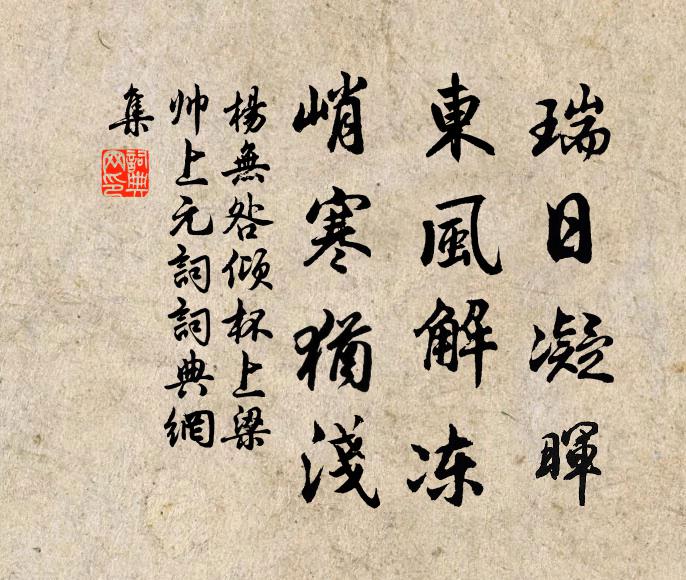 瑞日凝暉
東風解冻
峭寒猶淺
楊無咎傾杯上梁
帅上元詞詞典網
集
詞典
网印